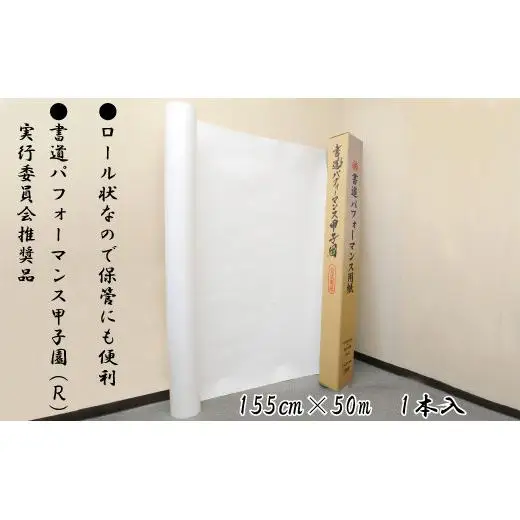 ●ロール状なので保管にも便利
●書道パフォーマンス甲子園(R)
実行委員会推奨品
書道パフォーマンス甲子園
書道パフォーマンス用紙
155cm×50m 1本入